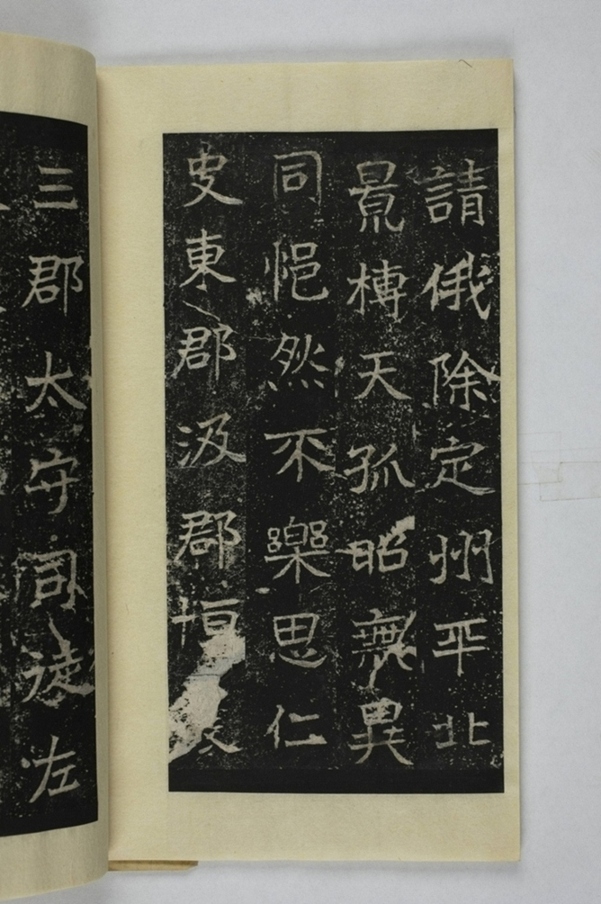 請俄除定州平北
景槫天孤昭無異
同悒然不樂思仁
叓東郡汲郡恒
三郡太守司徒左